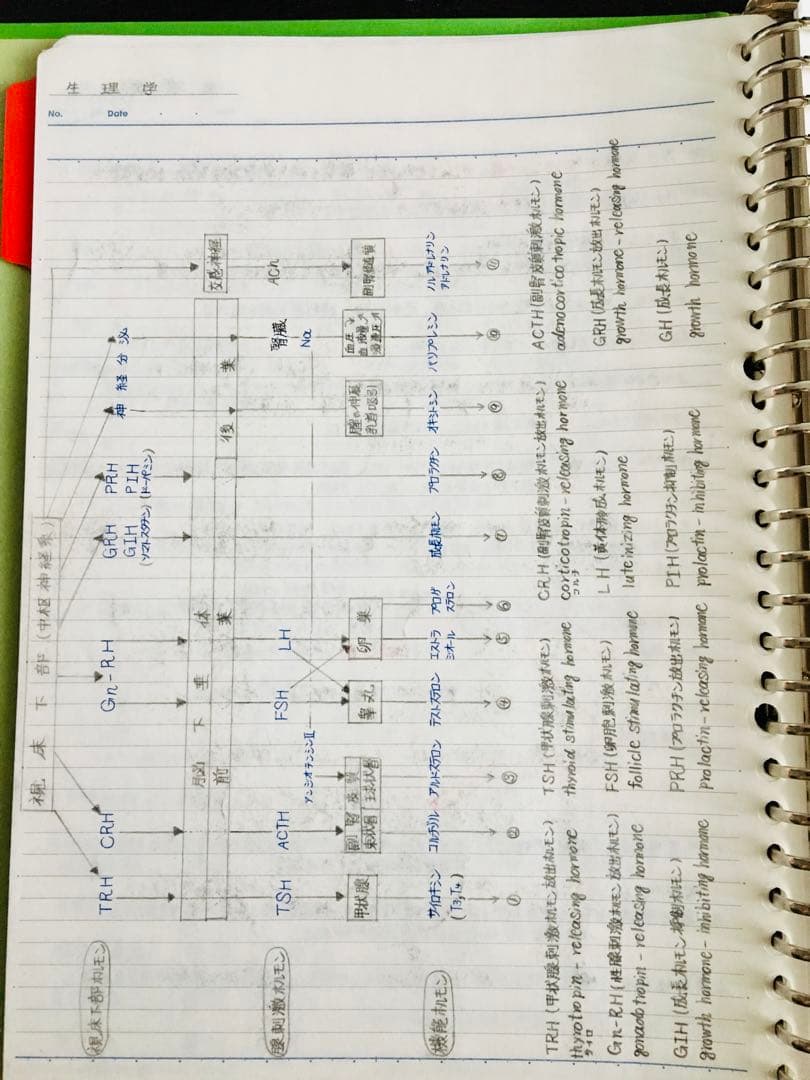 生理学
No. Date
視床下部(中枢神経系)
視床下部ホルモン
TRH CRH Gn-RH GRH PRH 神経分泌
GIH PIH
(ソマトスタチン) (ドーパミン)
脳下垂体
前葉 後葉 交感神経
アンジオテンシンⅡ
腺刺激ホルモン
TSH ACTH FSH LH 腎臓 ACh
Na
甲状腺 副腎皮質 睾丸 卵巣 副腎髄質
束状層 球状層 乳首の吸引 血圧
機能ホルモン
サイロキシン コルチゾル アルドステロン テストステロン エストラジオール プロゲステロン 成長ホルモン プロラクチン オキシトシン バソプレシン ノルアドレナリン
(T3,T4) アドレナリン
① ② ③ ④ ⑤ ⑥ ⑦ ⑧ ⑨ ⑩ ⑪
TRH(甲状腺刺激ホルモン放出ホルモン)
thyrotropin-releasing hormone
サイロ
Gn-RH(性腺刺激ホルモン放出ホルモン)
gonadotropin-releasing hormone
GIH(成長ホルモン抑制ホルモン)
growth hormone-inhibiting hormone
TSH(甲状腺刺激ホルモン)
thyroid stimulating hormone
FSH(卵胞刺激ホルモン)
follicle stimulating hormone
PRH(プロラクチン放出ホルモン)
prolactin-releasing hormone
CRH(副腎皮質刺激ホルモン放出ホルモン)
corticotropin-releasing hormone
コルチ
LH(黄体形成ホルモン)
luteinizing hormone
PIH(プロラクチン抑制ホルモン)
prolactin-inhibiting hormone
ACTH(副腎皮質刺激ホルモン)
adenocorticotropic hormone
GRH(成長ホルモン放出ホルモン)
growth hormone-releasing hormone
GH(成長ホルモン)
growth hormone